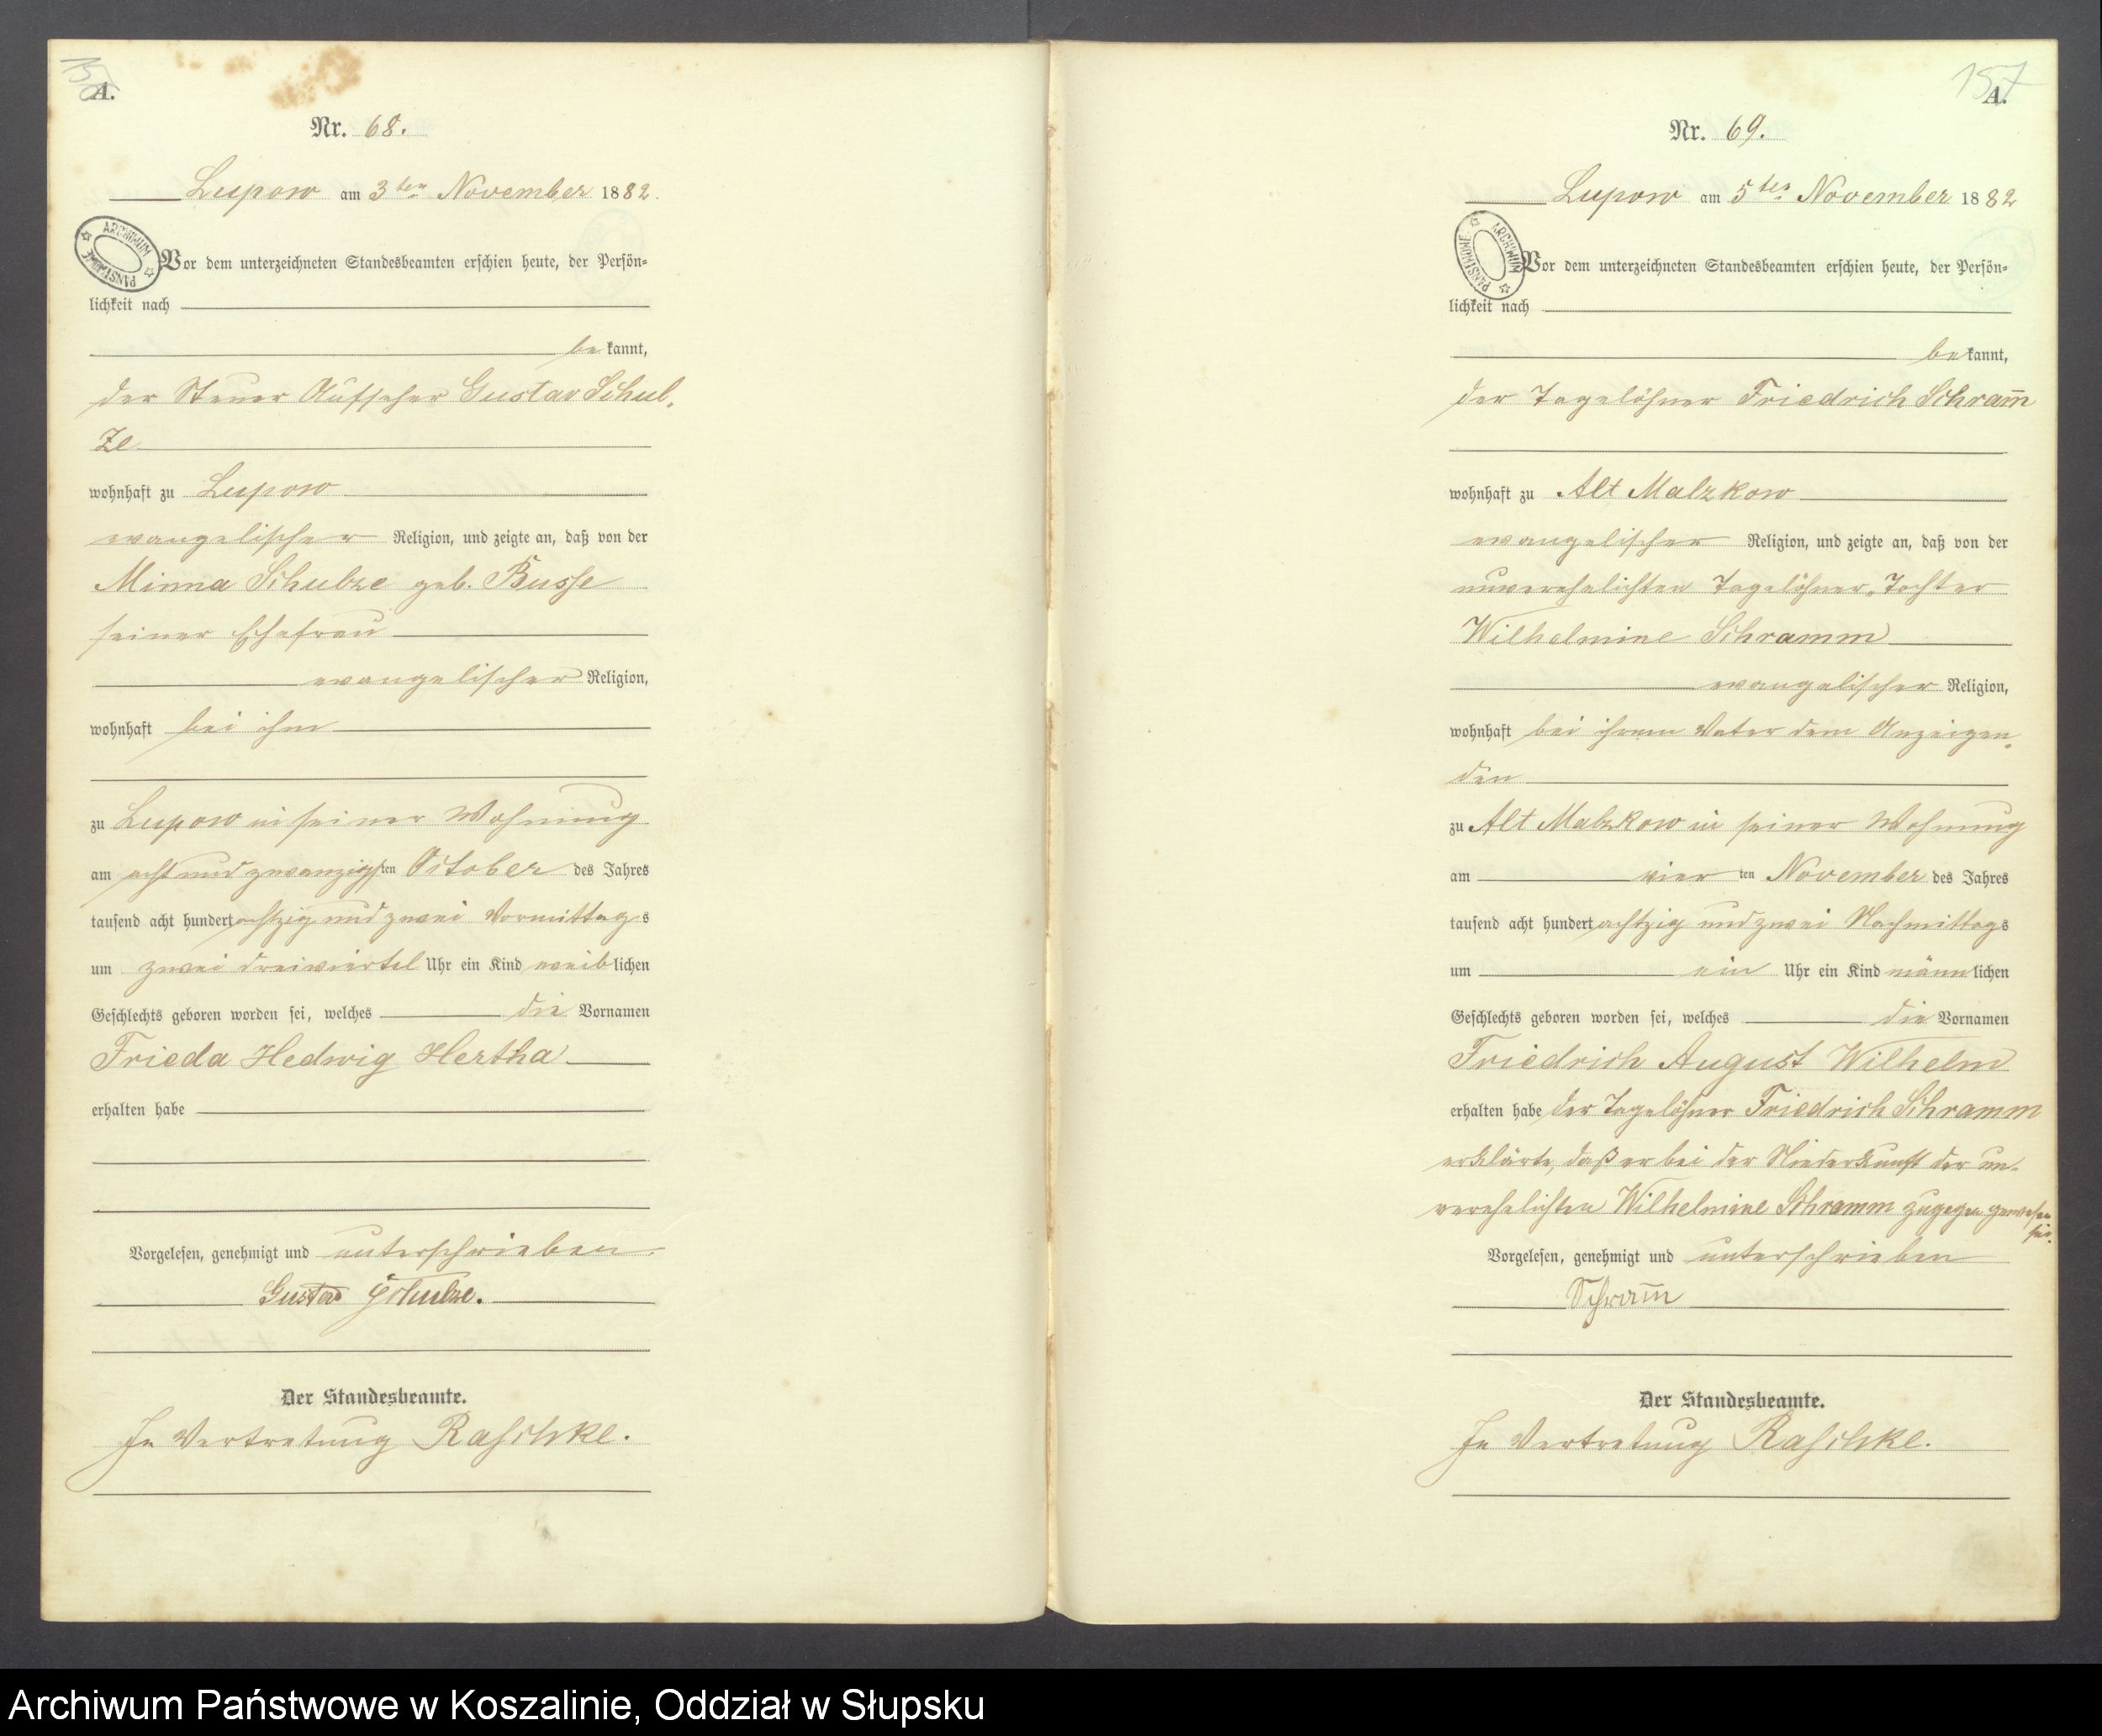 156
A.
Nr. 68.
Lupow am 3ten November 1882.
ARCHIWUM PAŃSTWOWE
Vor dem unterzeichneten Standesbeamten erschien heute, der Persön-
lichkeit nach
bekannt,
der Steuer Aufseher Gustav Schul-
ze
wohnhaft zu Lupow
evangelischer Religion, und zeigte an, daß von der
Minna Schulze geb. Busse
seiner Ehefrau
evangelischer Religion,
wohnhaft bei ihm
zu Lupow in seiner Wohnung
am acht und zwanzigsten October des Jahres
tausend acht hundert achtzig und zwei Vormittags
um zwei dreiviertel Uhr ein Kind weiblichen
Geschlechts geboren worden sei, welches die Vornamen
Frieda Hedwig Hertha
erhalten habe
Vorgelesen, genehmigt und unterschrieben.
Gustav Schulze.
Der Standesbeamte.
In Vertretung Raschke.
157
A.
Nr. 69.
Lupow am 5ten November 1882
ARCHIWUM PAŃSTWOWE
Vor dem unterzeichneten Standesbeamten erschien heute, der Persön-
lichkeit nach
bekannt,
der Tagelöhner Friedrich Schram̅
wohnhaft zu Alt Malzkow
evangelischer Religion, und zeigte an, daß von der
unverehelichten Tagelöhner-Tochter
Wilhelmine Schramm
evangelischer Religion,
wohnhaft bei ihrem Vater dem Anzeigen-
den
zu Alt Malzkow in seiner Wohnung
am vierten November des Jahres
tausend acht hundert achtzig und zwei Nachmittags
um ein Uhr ein Kind männlichen
Geschlechts geboren worden sei, welches die Vornamen
Friedrich August Wilhelm
erhalten habe der Tagelöhner Friedrich Schramm
erklärte, daß er bei der Niederkunft der un-
verehelichten Wilhelmine Schramm zugegen gewesen
sei.
Vorgelesen, genehmigt und unterschrieben
Schram̅
Der Standesbeamte.
In Vertretung Raschke.
Archiwum Państwowe w Koszalinie, Oddział w Słupsku